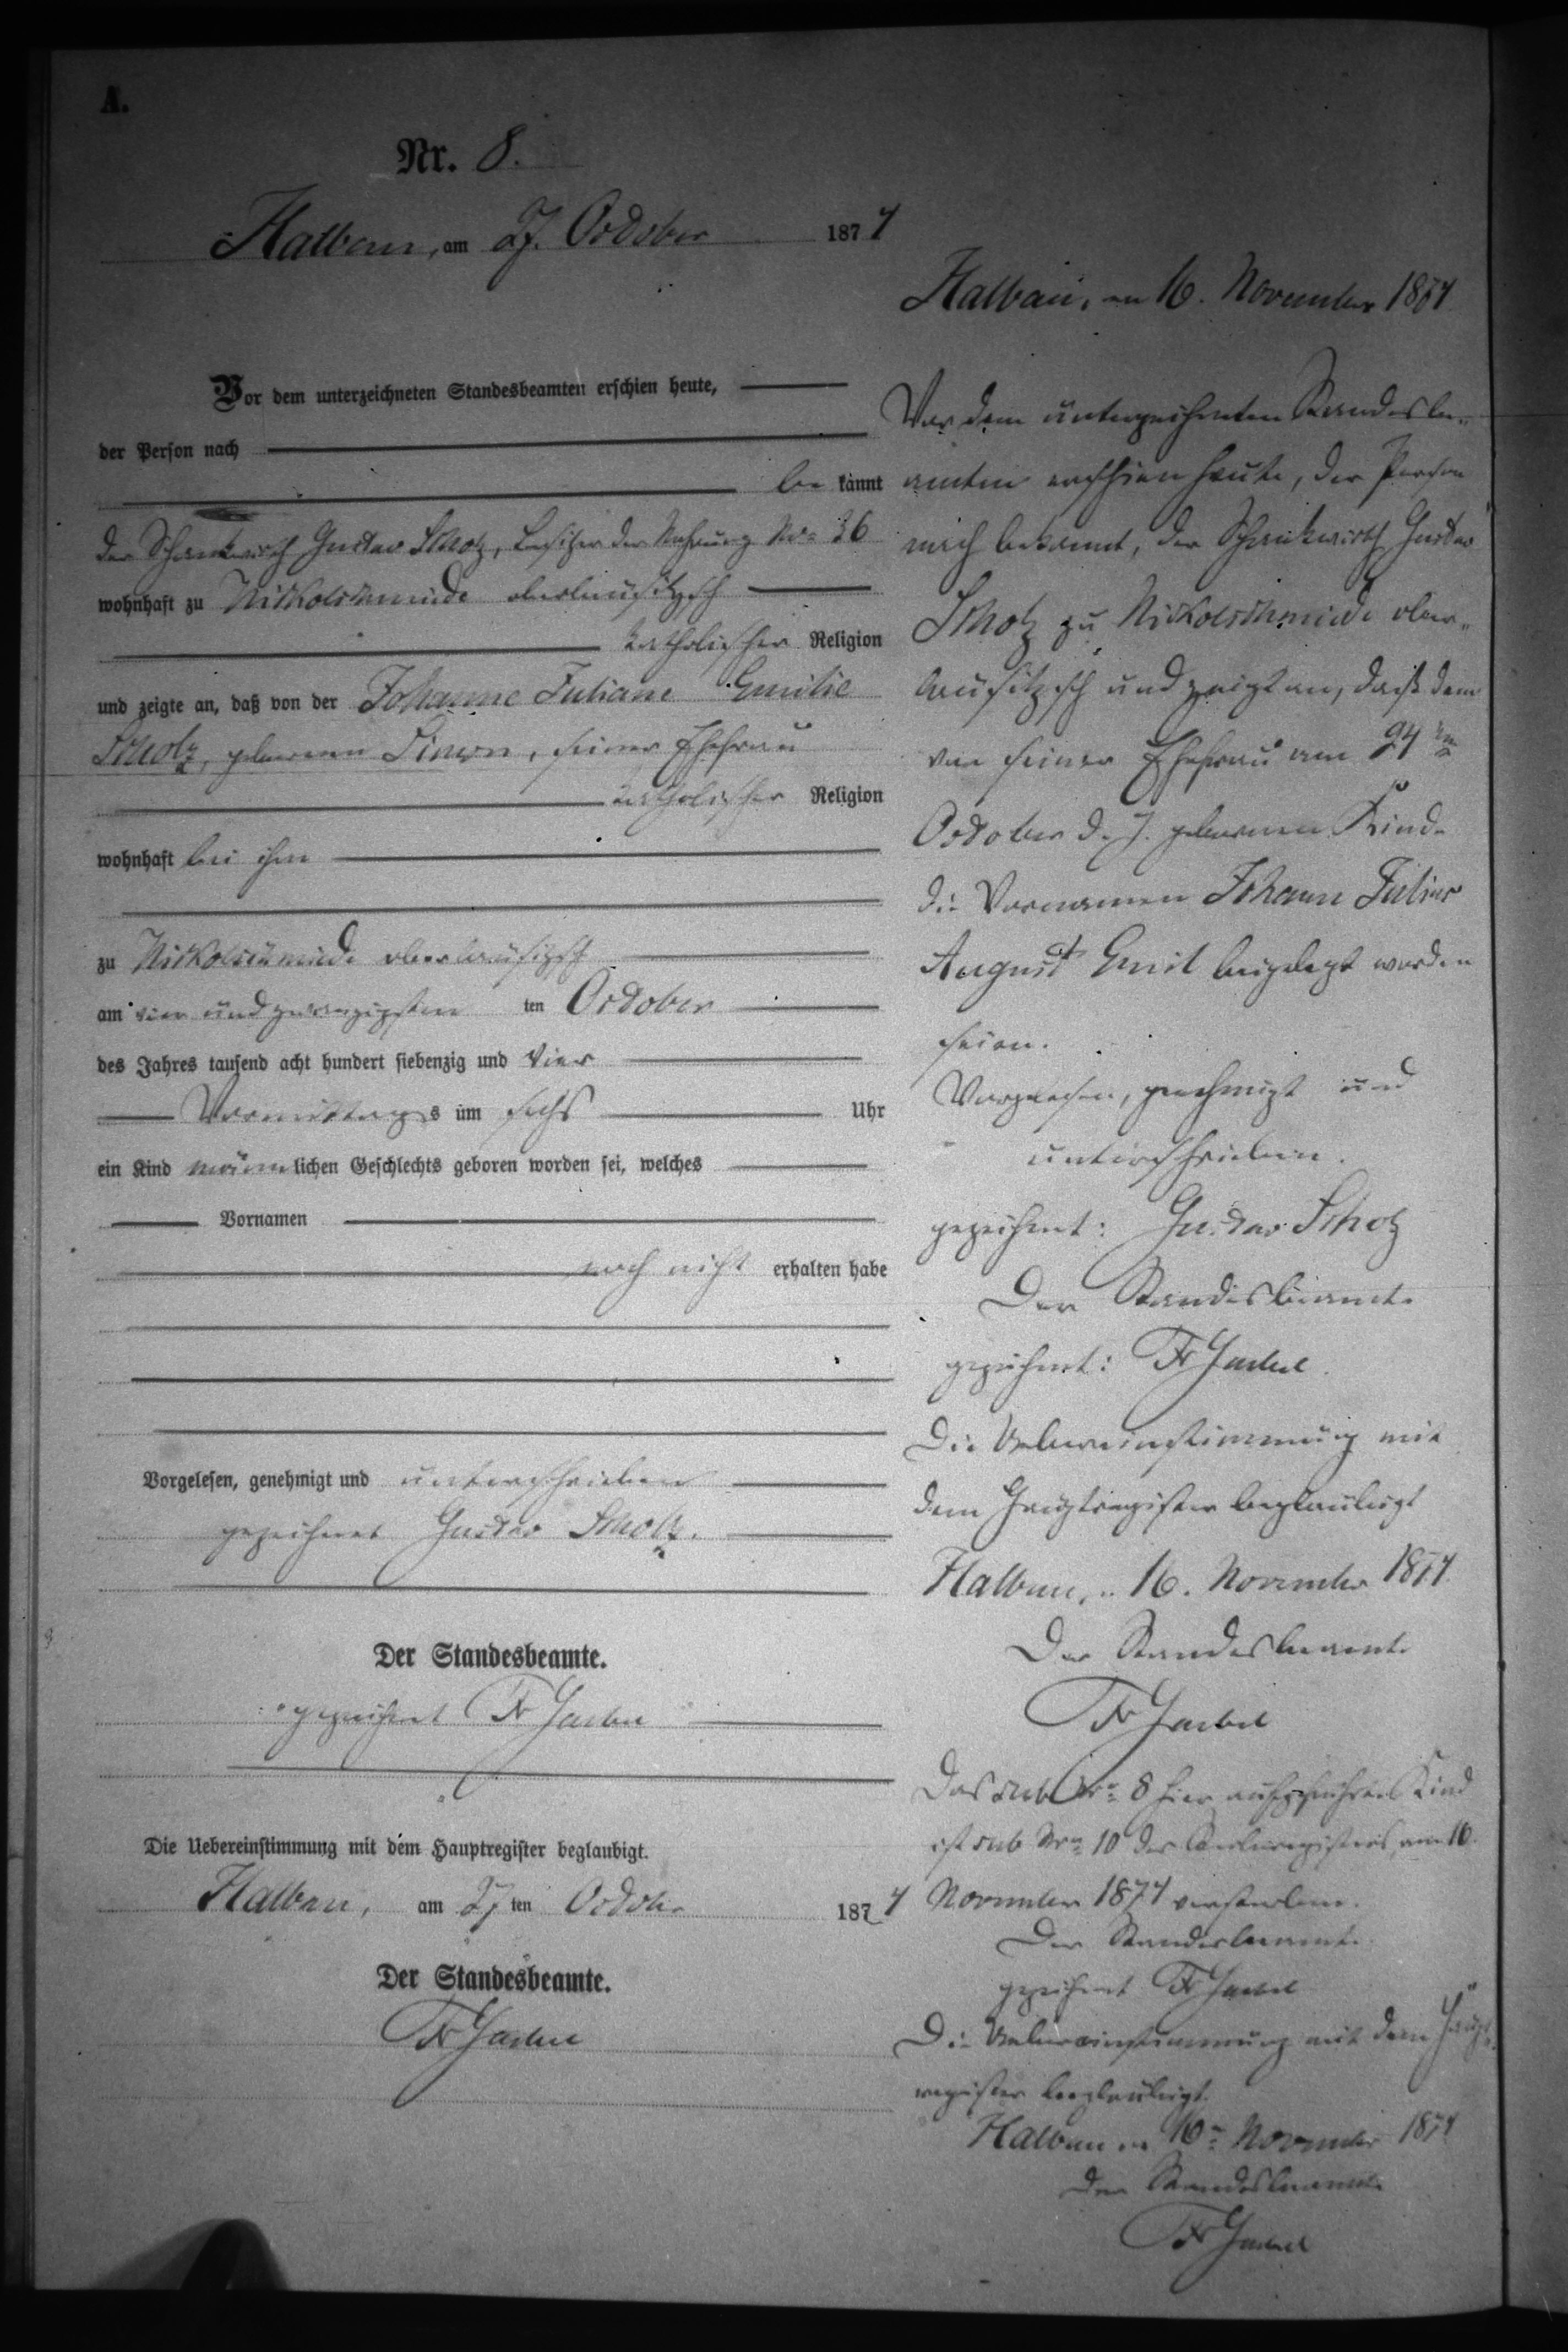 A.
Nr. 8.
Halbau, am 27. October 1874
Vor dem unterzeichneten Standesbeamten erschien heute,
der Person nach
be kannt
der Schankwirth Gustav Scholz, Besitzer der Nahrung No 36
wohnhaft zu Nikolschmiede oberlausitzsch
katholischer Religion
und zeigte an, daß von der Johanne Juliane Emilie
Scholz, geborenen Simon, seiner Ehefrau
katholischer Religion
wohnhaft bei ihm
zu Nikolschmiede oberlausitzsch
am vier und zwanzigsten ten October
des Jahres tausend acht hundert siebenzig und vier
Vormittags um sechs Uhr
ein Kind männlichen Geschlechts geboren worden sei, welches
Vornamen
noch nicht erhalten habe
Vorgelesen, genehmigt und unterschrieben
gezeichnet Gustav Scholz.
Der Standesbeamte.
gezeichnet Fr
Die Uebereinstimmung mit dem Hauptregister beglaubigt.
Halbau, am 27 ten October 1874
Der Standesbeamte.
Fr
Halbau, am 16. November 1874
Vor dem unterzeichneten Standesbe-
amten erschien heute, der Person
nach bekannt, der Schankwirth Gustav
Scholz zu Nikolschmiede ober-
lausitzsch und zeigt an, daß dem
von seiner Ehefrau am 24ten
October d. J. geborenen Kinde
die Vornamen Johann Julius
August Emil beigelegt worden
seien.
Vorgelesen, genehmigt und
unterschrieben.
gezeichnet: Gustav Scholz
Der Standesbeamte
gezeichnet: Fr
Die Uebereinstimmung mit
dem Hauptregister beglaubigt
Halbau, am 16. November 1874.
Der Standesbeamte
Fr
Das sub No 8 hier aufgeführte Kind
ist sub No 10 des Sterberegisters am 16.
November 1874 verstorben.
Der Standesbeamte.
gezeichnet Fr
Die Uebereinstimmung mit dem Haupt-
register beglaubigt.
Halbau am 16ten November 1874
Der Standesbeamte
Fr